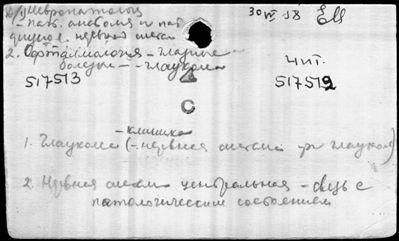 Невропатология 30 VI 58
- пат. анатомия и пат
нервная система
2. Офтальмология - глазные
болезни - - глаукома чит.
517513 517512
С
- клиника
1. Глаукома (- нервная система при глаукоме)
2. Нервная система центральная - связь с
патологическим состоянием